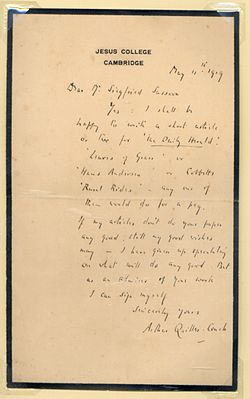 JESUS COLLEGE
CAMBRIDGE
May 11th 1919
Dear Mr Siegfried Sassoon
Yes: I shall be
happy to write a short article
or two for 'the Daily Herald'
'Leaves of Grass' or
'Hans Andersen' or Cobbett's
'Rural Rides' - any one of
them would do for a peg.
If my articles don't do your paper
any good, still my good wishes
may - I have given up speculating
on what will do any good. But
as an admirer of your work
I can sign myself
Sincerely yours
Arthur Quiller-Couch